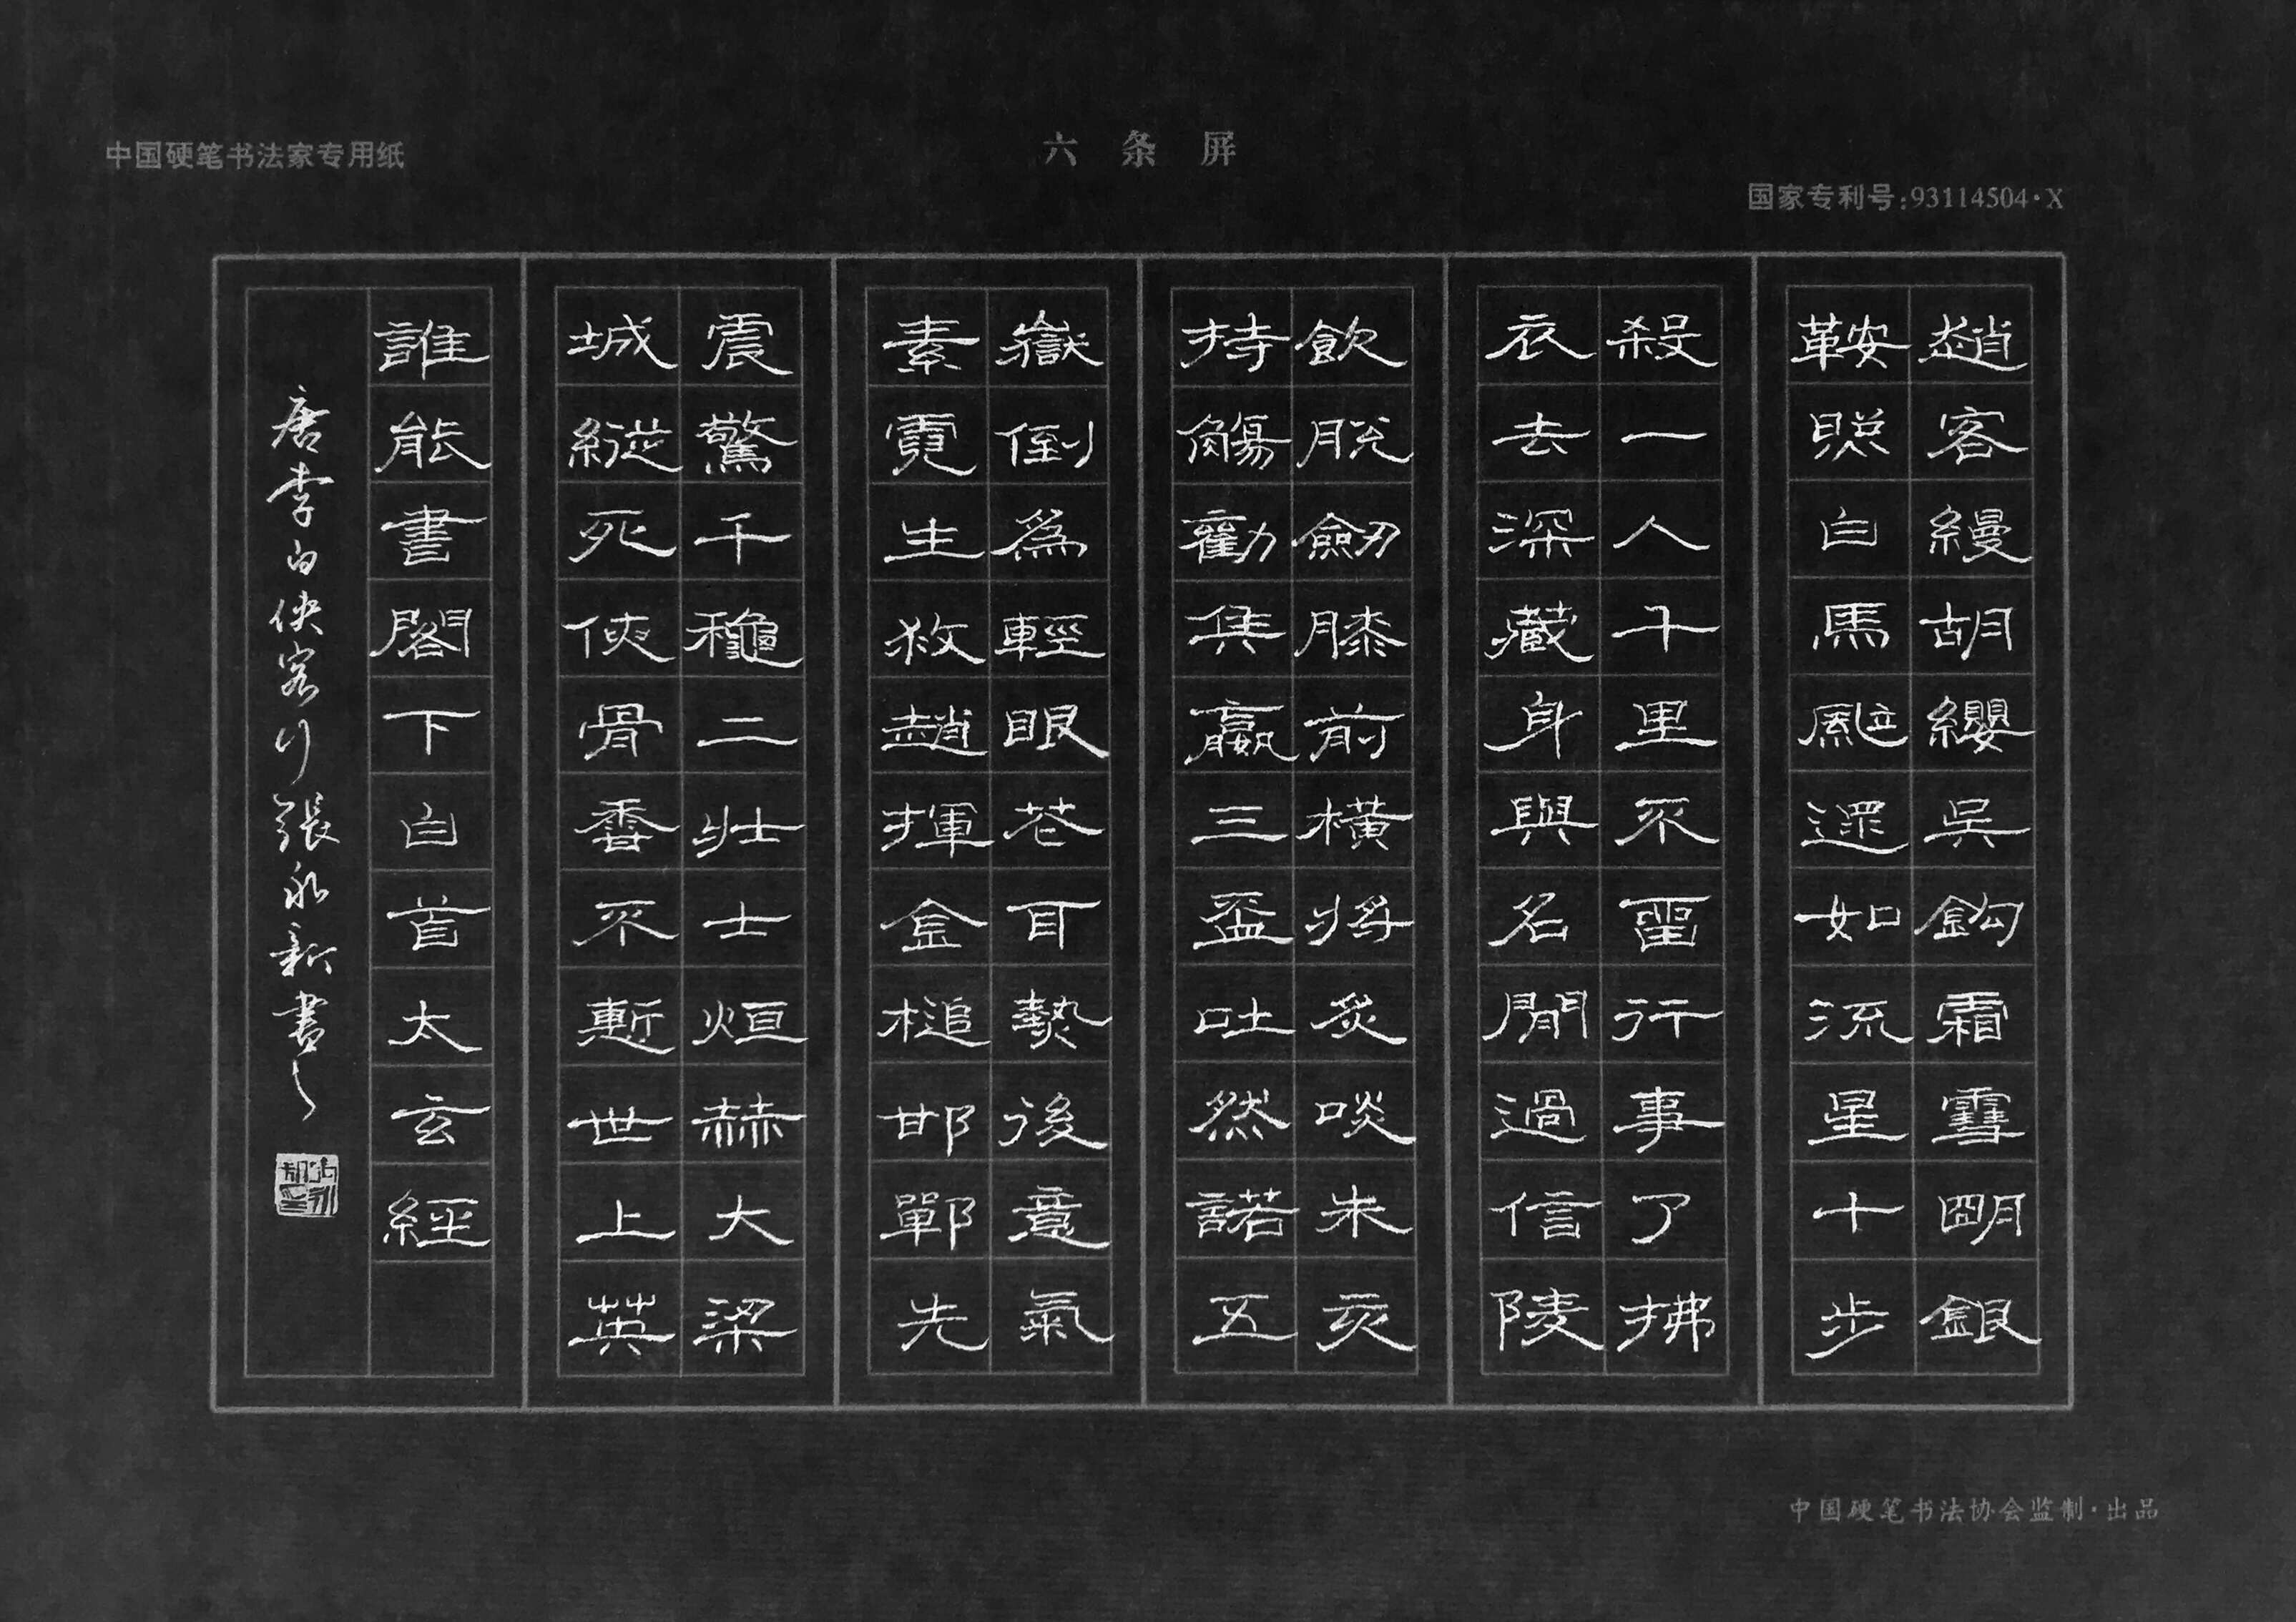 中国硬笔书法家专用纸
六条屏
国家专利号:93114504·X
趙客縵胡纓吳鈎霜雪朙銀
鞍照白馬颯遝如流星十步
殺一人千里不留行事了拂
衣去深藏身與名閒過信陵
飲脫劒膝前橫將炙啖朱亥
持觴勸侯嬴三盃吐然諾五
嶽倒為輕眼花耳熱後意氣
素霓生救趙揮金槌邯鄲先
震驚千龝二壯士烜赫大梁
城縱死俠骨香不慙世上英
誰能書閣下白首太玄經
唐李白俠客行張永新書之
中国硬笔书法协会监制·出品